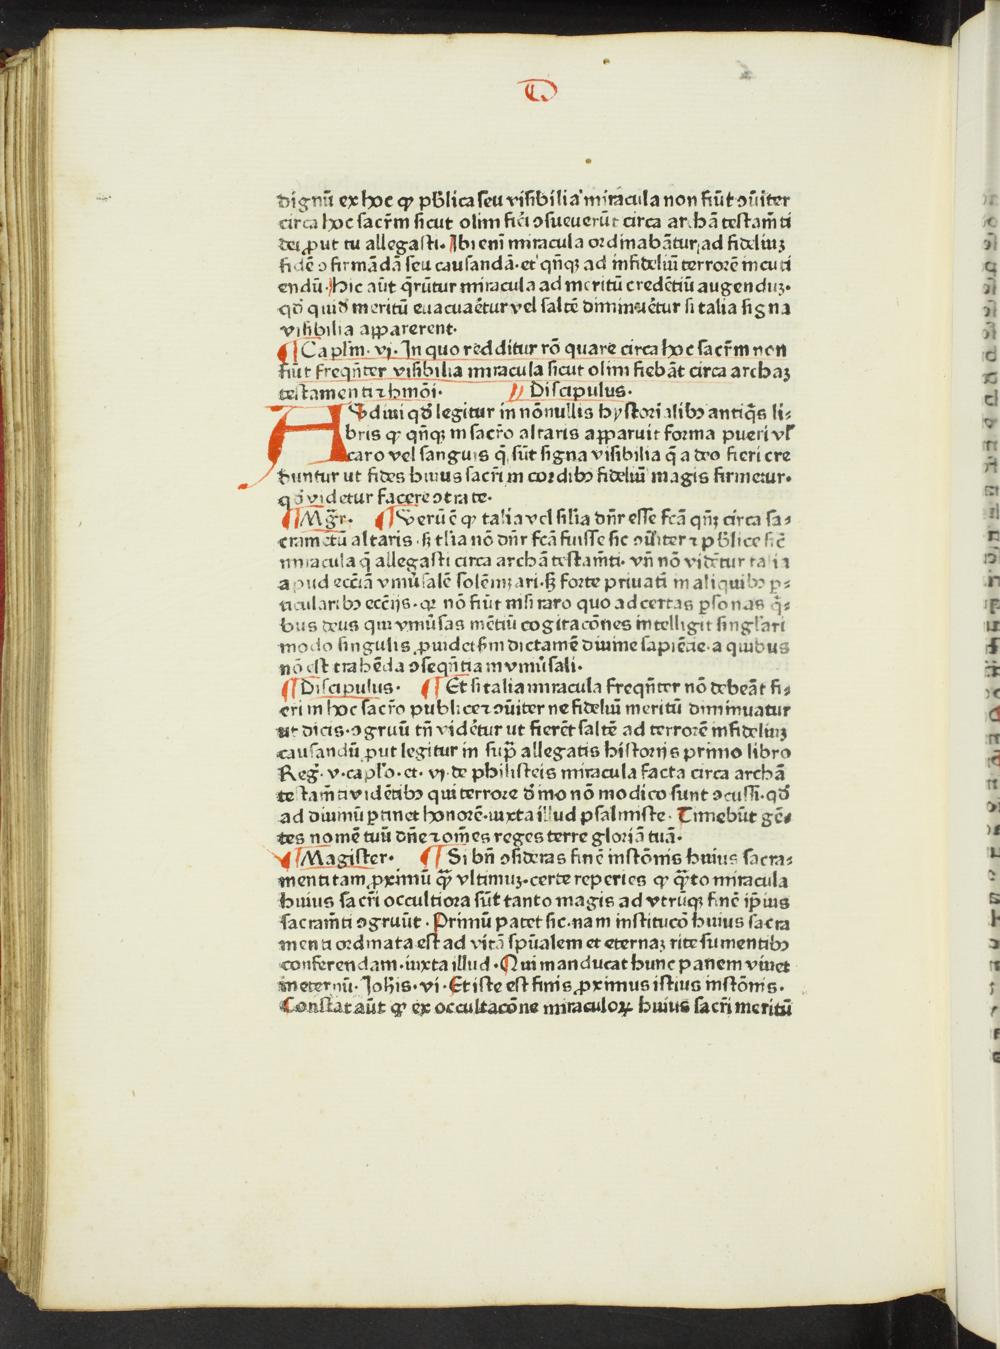 dignū ex hoc ꝙ pƀlica seu visibilia miracula non fiūt ꝯūiter
circa hoc sacr̄m sicut olim fiēi ꝯsueuerūt circa archā testam̄ti
dei ꝓut tu allegasti. Ibi enī miracula ordinabāntur ad fideliuꝫ
fidē ꝯfirmādā seu causandā. et qn̄qꝫ ad infideliū terrorē incuti
endū. hic aūt q̄rūtur miracula ad meritū credētiū augenduꝫ.
qd̄ quid̄ meritū euacuaētur vel saltē diminuētur si talia signa
visibilia apparerent.
¶ Capl̄m. vj. In quo redditur rō quare circa hoc sacr̄m non
fiūt freqn̄ter visibilia miracula sicut olim fiebāt circa archaꝫ
testamenti ⁊ hmōi. Discipulus.
AVdiui qd̄ legitur in nōnullis hystorialibꝰ antiq̄s li⸗
bris ꝙ qn̄qꝫ in sacro altaris apparuit forma pueri vl̄
caro vel sanguis q̄ sūt signa visibilia q̄ a deo fieri cre
duntur ut fides huius sacr̄i in cordibꝰ fideliū magis firmetur.
qd̄ videtur facere ꝯtra te.
¶ Mgr̄. ¶ Verū ē ꝙ talia vel silia dn̄r esse fc̄a qn̄qꝫ circa sa⸗
crametū altaris. sꝫ tl̄ia nō dn̄r fc̄a fuisse sic ꝯūiter ⁊ pƀlice sic̄
miracula q̄ allegasti circa archā testam̄ti. vn̄ nō vidētur talia
apud ecc̄iā vniūsalē solēnizari. sꝫ forte priuatī in aliquibꝰ p⸗
ticularibꝰ ecc̄ijs. qꝛ nō fiūt nisi raro quo ad certas ꝑsonas q̄⸗
bus deus qui vniūsas mētiū cogitacōnes intelligit singl̄ari
modo singulis ꝓuidet sm̄ dictamē diuine sapiēcie. a quibus
nō est trahēda ꝯseqn̄tia in vniūsali.
¶ Discipulus. ¶ Et si talia miracula freqn̄ter nō debeāt fi⸗
eri in hoc sacro publice ⁊ ꝯūiter ne fideliū meritū diminuatur
ut dicis. ꝯgruū tn̄ vidētur ut fierēt saltē ad terrorē infideliuꝫ
causandū ꝓut legitur in sup̄ allegatis historijs primo libro
Reḡ. v. capl̄o. et. vj. de philisteis miracula facta circa archā
testam̄ti vidētibꝰ qui terrore d̄mo nō modico sunt ꝯcussi. qd̄
ad diuinū ꝑtinet honorē. iuxta illud psalmiste. Timebūt gē⸗
tes nomē tuū dn̄e ⁊ om̄es reges terre gloriā tuā.
¶ Magister. ¶ Si bn̄ ꝯsideras finē instōnis huius sacra⸗
menti tam ꝓximū qꝫ vltimuꝫ. certe reperies ꝙ qꝫto miracula
huius sacr̄i occultiora sūt tanto magis ad vtrūqꝫ finē ip̄ius
sacram̄ti ꝯgruūt. Primū patet sic. nam institucō huius sacra
menti ordinata est ad vitā sp̄ualem et eternaꝫ rite sumentibꝰ
conferendam. iuxta illud. Qui manducat hunc panem viuet
in eternū. Joh̄is. vi. Et iste est finis ꝓximus istius instōnis.
Constat aūt ꝙ ex occultacōne miraculoꝝ huius sacr̄i meritū